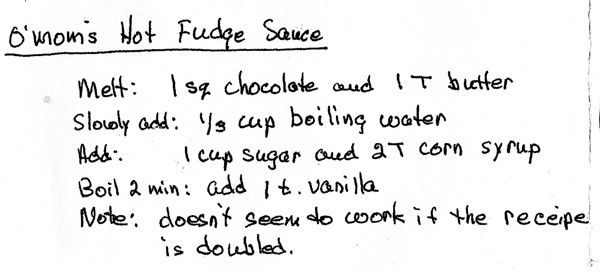 O'mom's Hot Fudge Sauce
Melt: 1 sq chocolate and 1 T butter
Slowly add: 1/3 cup boiling water
Add: 1 cup sugar and 2T corn syrup
Boil 2 min: add 1 t. vanilla
Note: doesn't seem to work if the receipe
is doubled.